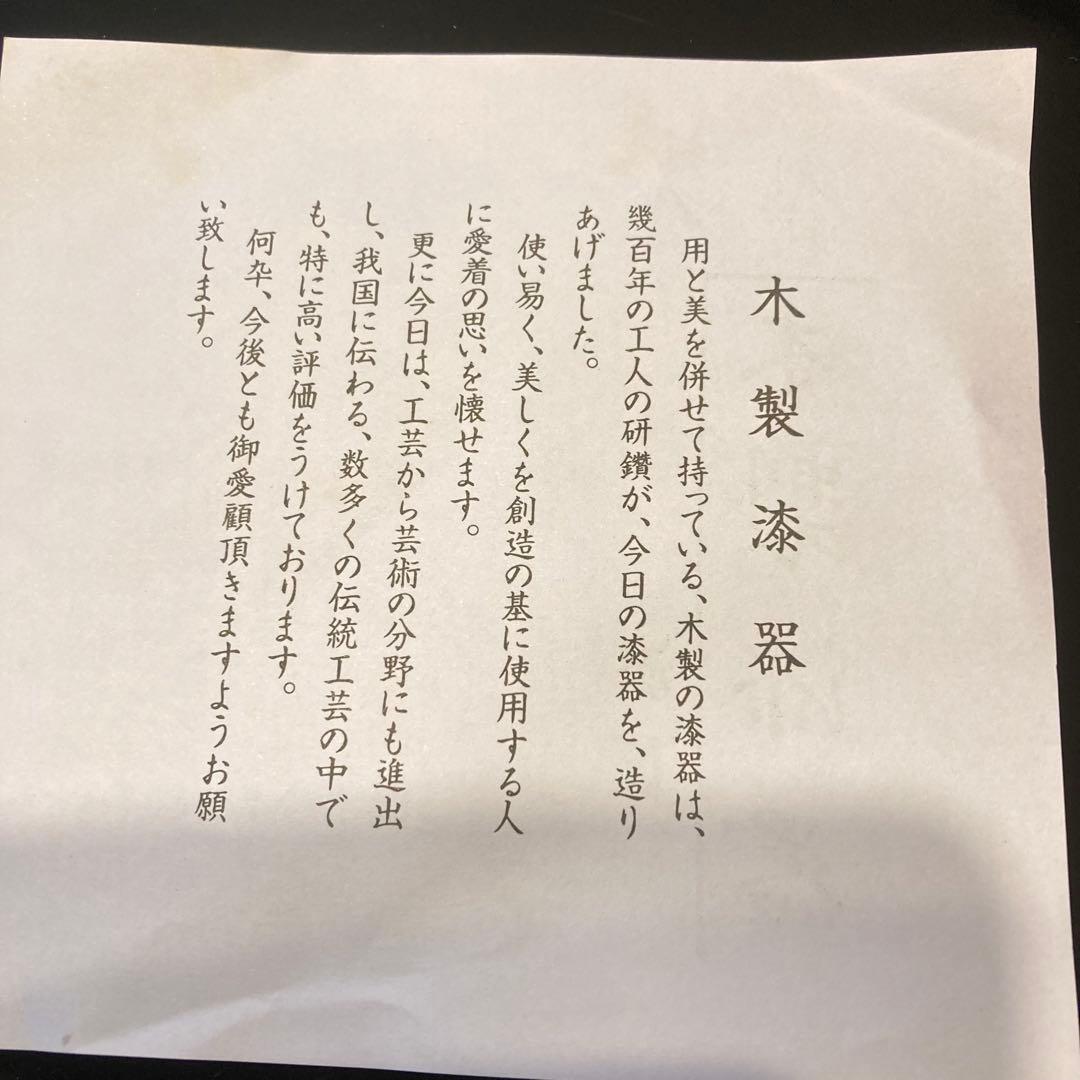 木製漆器
用と美を併せて持っている、木製の漆器は、
幾百年の工人の研鑽が、今日の漆器を、造り
あげました。
使い易く、美しくを創造の基に使用する人
に愛着の思いを懐せます。
更に今日は、工芸から芸術の分野にも進出
し、我国に伝わる、数多くの伝統工芸の中で
も、特に高い評価をうけております。
何卆、今後とも御愛顧頂きますようお願
い致します。